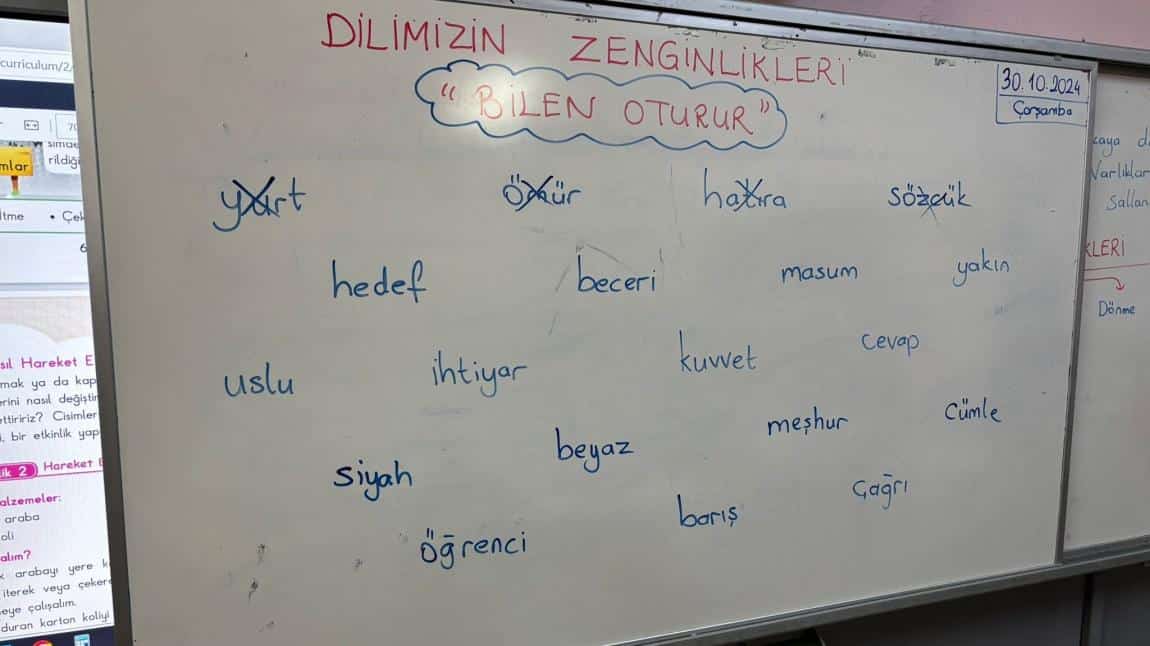 DİLİMİZİN ZENGİNLİKLERİ
"BİLEN OTURUR"
30.10.2024
Çarşamba
yurt ömür hatıra sözcük
hedef beceri masum yakın
uslu ihtiyar kuvvet cevap
siyah beyaz meşhur cümle
öğrenci barış çağrı
curriculum/2
mlar
rildiği
ltme • Çek
6
sıl Hareket E
mak ya da kap
erini nasıl değiştir
ettiririz? Cisimler
i, bir etkinlik yap
ik 2 Hareket
alzemeler:
araba
oli
alım?
k arabayı yere k
iterek veya çeker
eye çalışalım.
duran karton koliyi
kaya d
Varlıklar
Sallan
KLERİ
Dönme